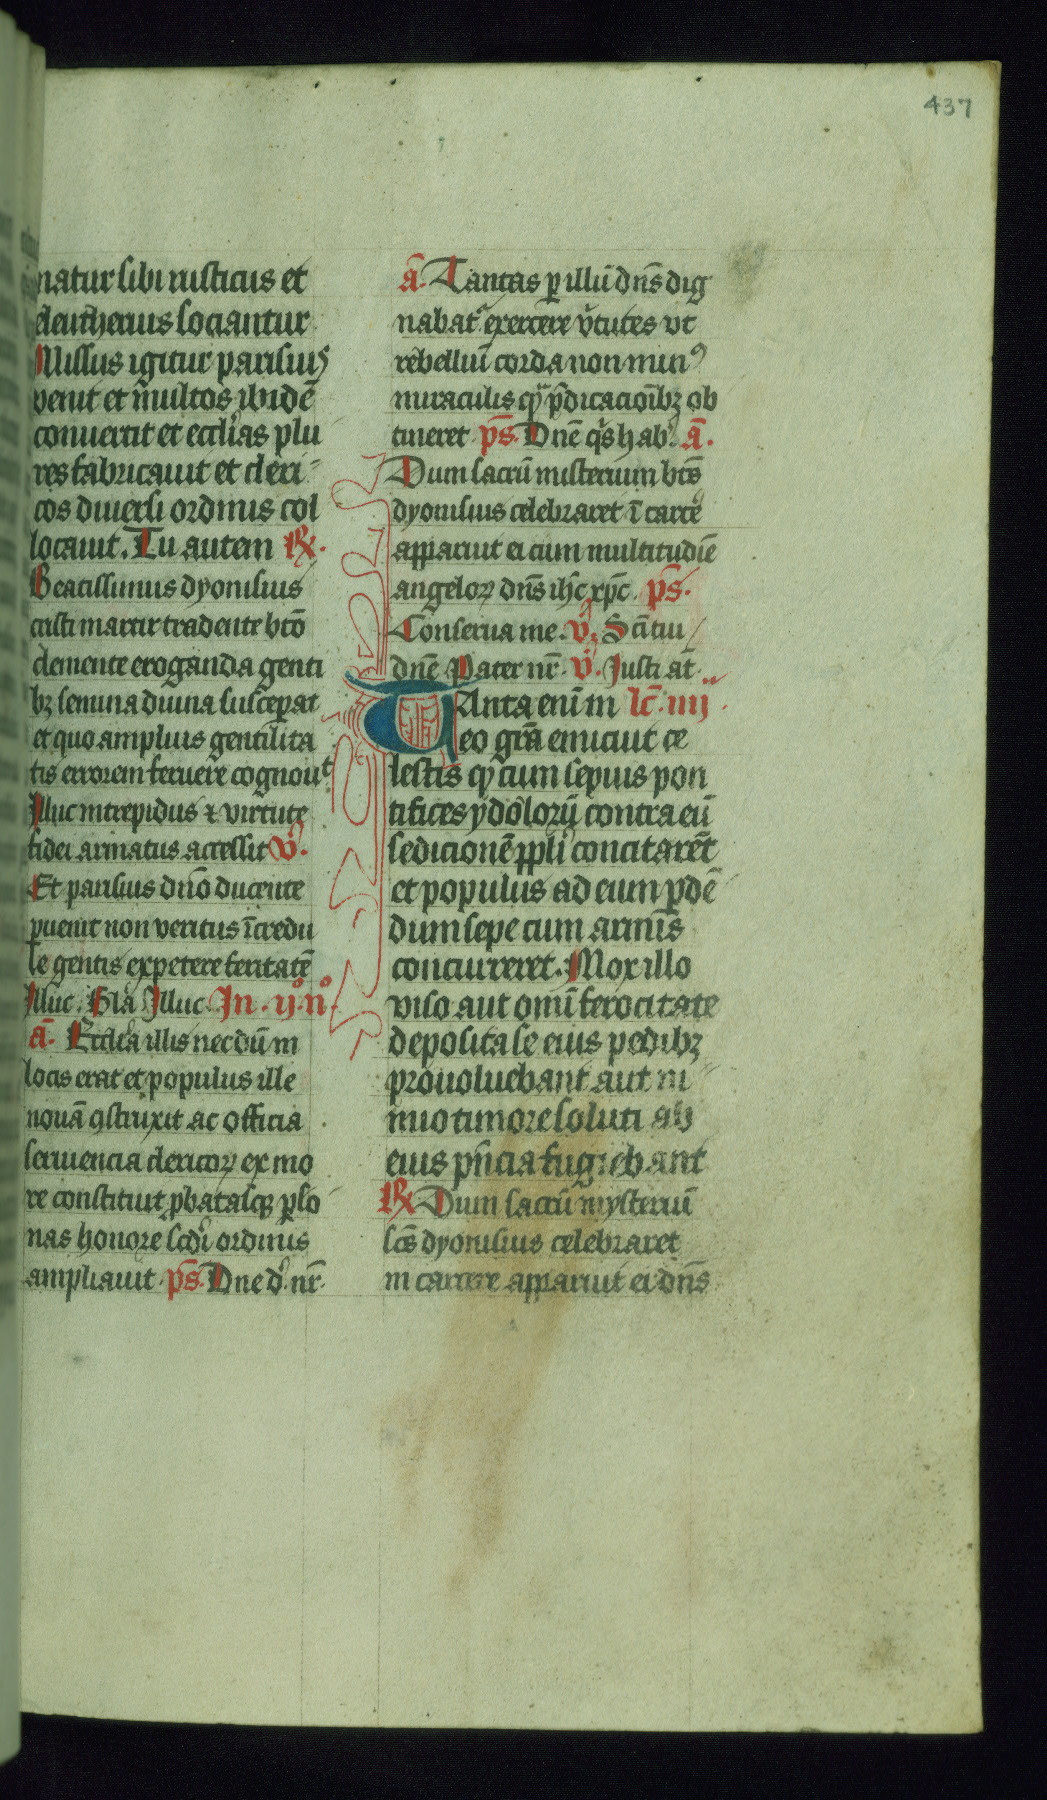 437
natur sibi rusticus et
eleutherius sociantur
Missus igitur parisius
venit et m̃ultos ibidē
conuertit et eccl̓ias plu
res fabricauit et cleri
cos diuersi ordinis col
locauit. Tu autem R̸.
Beatissimus dyonisius
cristi martir tradente btō
clemente eroganda genti
bꝫ semina diuina susceperat
et quo amplius gentilita
tis errorem feruere cognouit
Illuc intrepidus ⁊ virtute
fidei armatus accessit V̓.
Et parisius dnō ducente
ꝑuenit non veritus īcredu
le gentis expetere feritatē
Illuc. Gl̓a Illuc. In .ijº. nº
ā. Eccl̓ia illis necdū in
locis erat et populus ille
nouā ꝯstruxit ac officia
seruiencia clericoꝝ ex mo
re constituit ꝓbatasqꝫ ꝑso
nas honore scdī ordinis
ampliauit. ps̄. Dne d̓. nr̄.
ā. Tantas ꝑ illū dn̄s dig
nabat̉ exercere v̓tutes vt
rebelliū corda non minꝰ
miraculis qͣꝫ p̄dicacioībꝫ ob
tineret ps̄. Dnē qͥs hab̓. ā.
Dum sacrū misterium bt̄s
dyonisius celebraret ī carcē
appariut ei cum multitudīe
angeloꝝ dn̄s ih̄c xp̄c. ps̄.
Conserua me. V̓. Sc̄i tui
dnē Pater nr̄. V̓. Justi at
TAnta enim lc̄. iiij.
eo grā emicuit ce
lestis qꝫ cum sepius pon
tifices ydoloꝝ contra eū
sedicionē ppl̓i concitarēt
et populus ad eum ꝑdē
dum sepe cum armis
concurreret. Mox illo
viso aut om̄i ferocitate
deposita se eius pedibꝫ
prouoluebant aut ni
mio timore soluti ab
eius pn̄cia fugiebant
R̸ Dum sacrū mysteriū
sc̄s dyonisius celebraret
in carcere appariut ei dn̄s